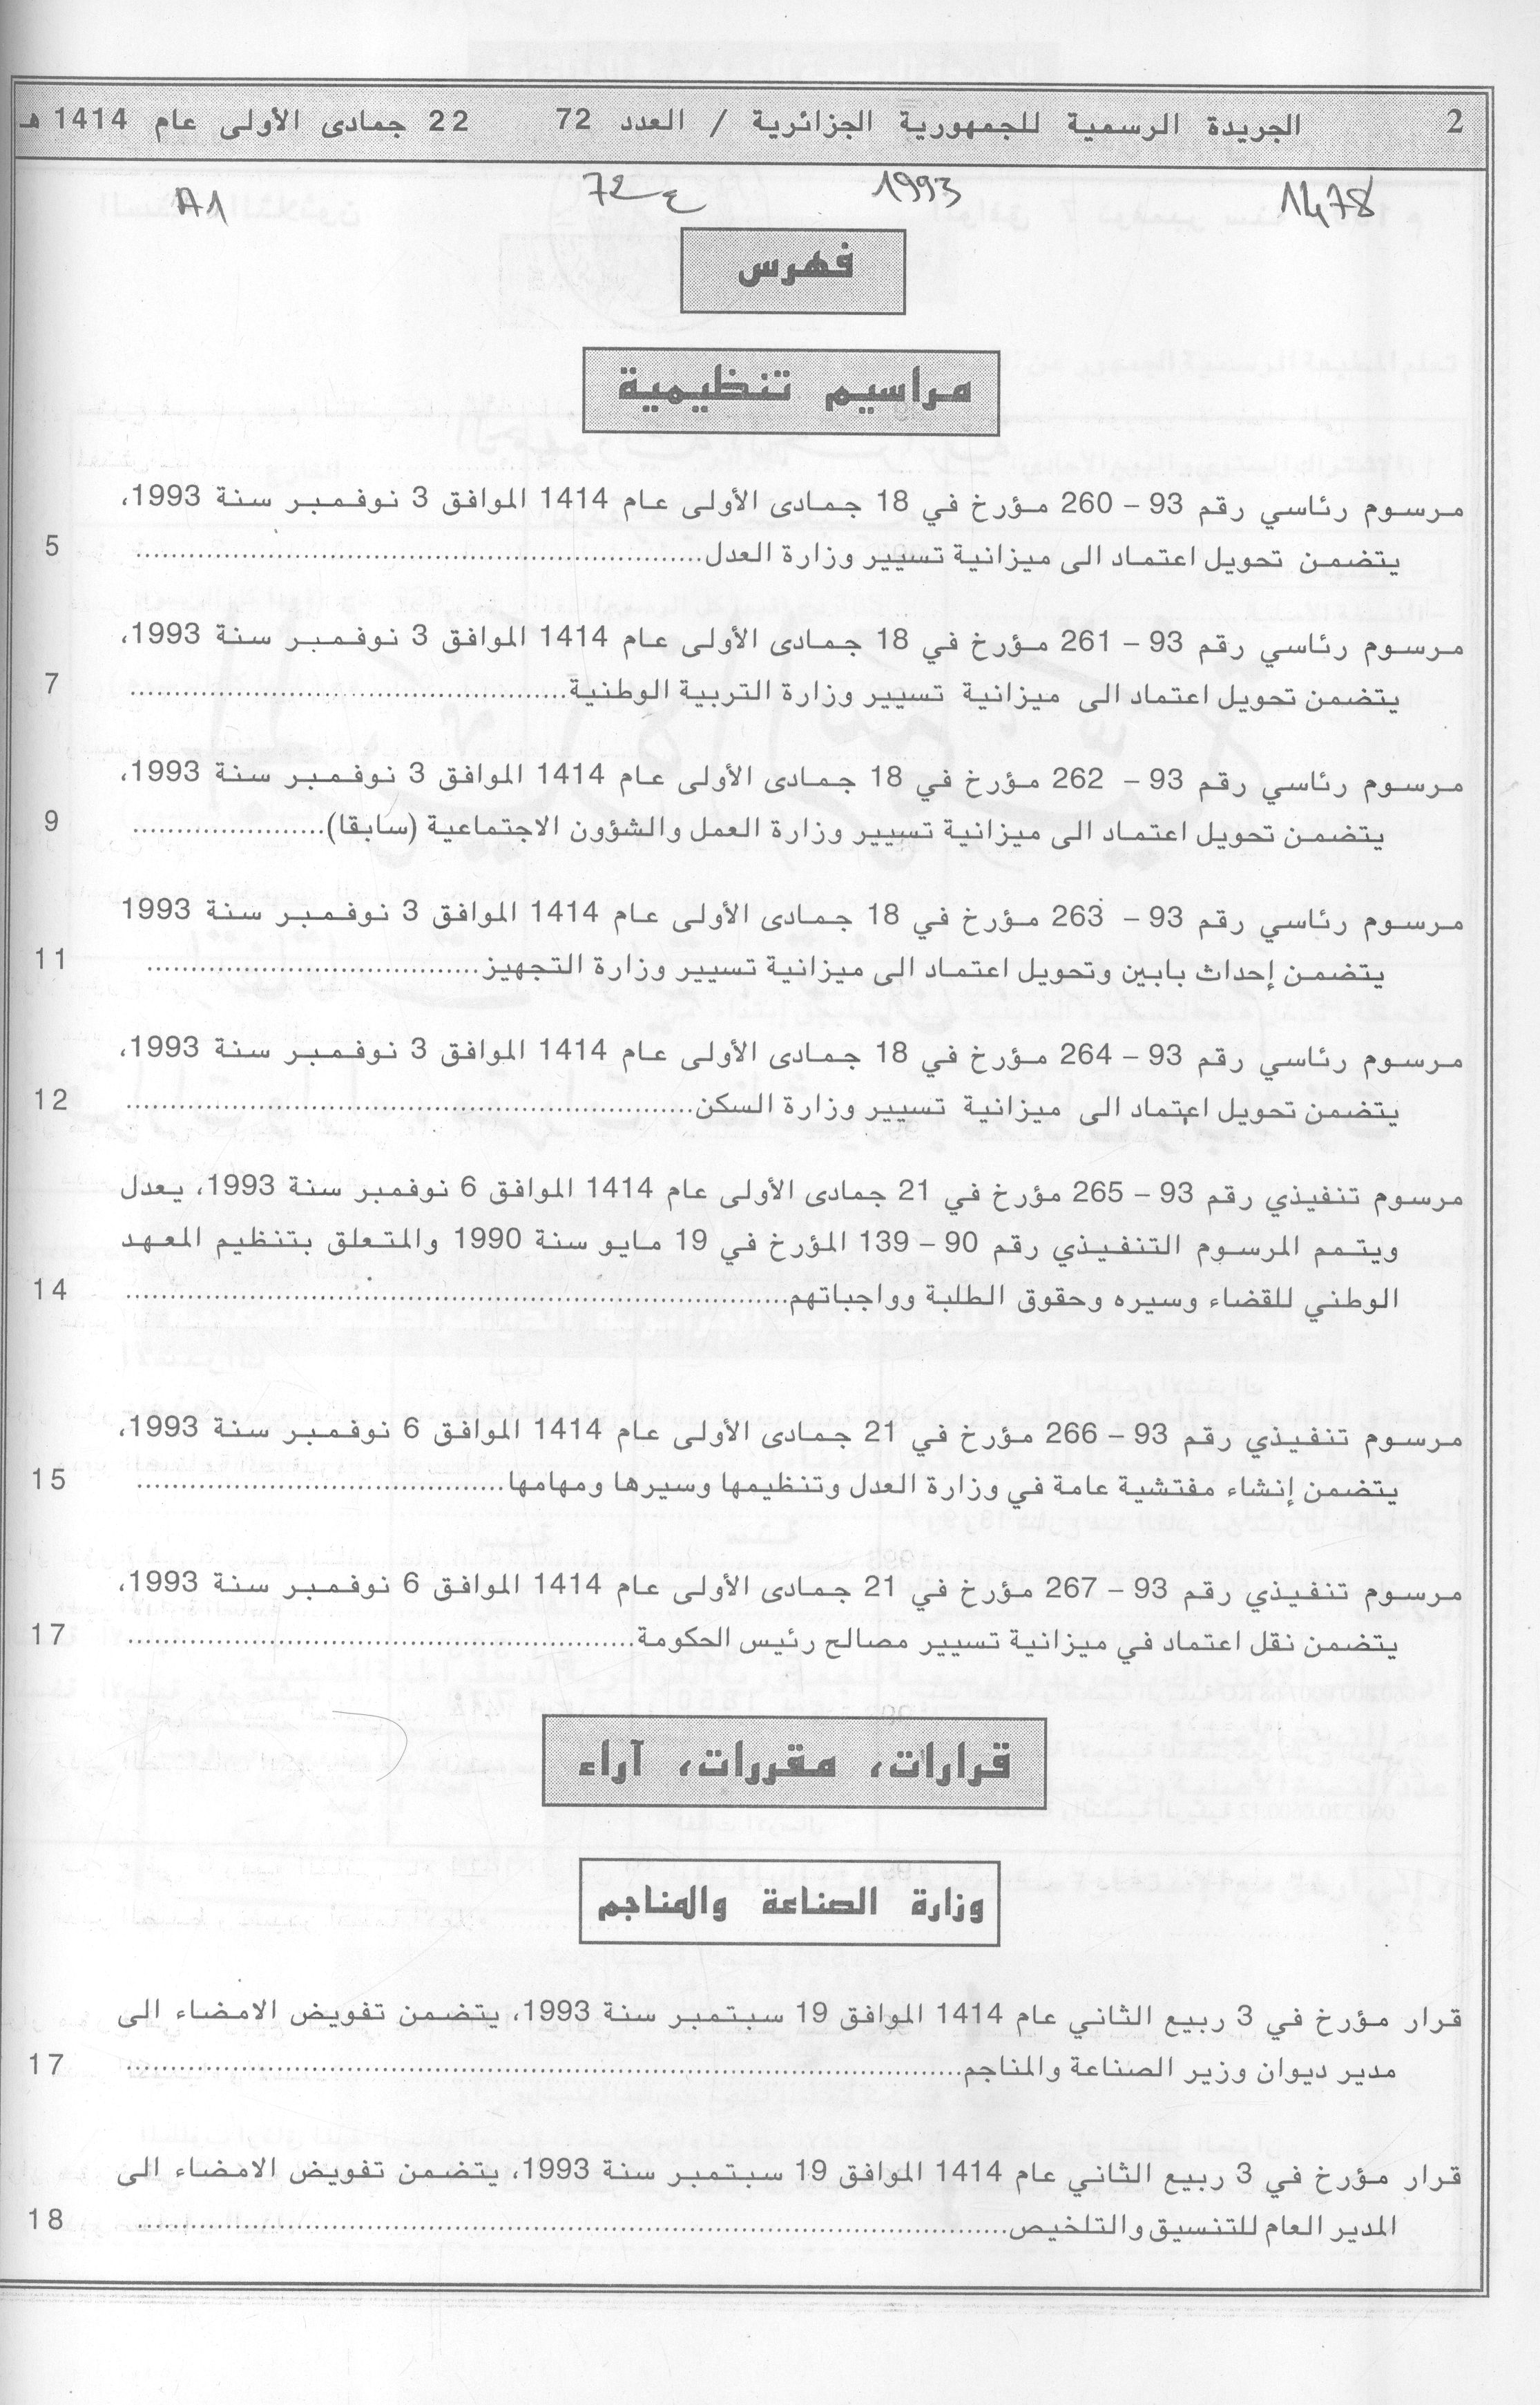 2 الجريدة الرسمية للجمهورية الجزائرية / العدد 72 22 جمادى الأولى عام 1414 هـ
1478 1993 ع 72 A1
فهرس
مراسيم تنظيمية
مرسوم رئاسي رقم 93 - 260 مؤرخ في 18 جمادى الأولى عام 1414 الموافق 3 نوفمبر سنة 1993،
يتضمن تحويل اعتماد الى ميزانية تسيير وزارة العدل........ 5
مرسوم رئاسي رقم 93 - 261 مؤرخ في 18 جمادى الأولى عام 1414 الموافق 3 نوفمبر سنة 1993،
يتضمن تحويل اعتماد الى ميزانية تسيير وزارة التربية الوطنية........ 7
مرسوم رئاسي رقم 93 - 262 مؤرخ في 18 جمادى الأولى عام 1414 الموافق 3 نوفمبر سنة 1993،
يتضمن تحويل اعتماد الى ميزانية تسيير وزارة العمل والشؤون الاجتماعية (سابقا)........ 9
مرسوم رئاسي رقم 93 - 263 مؤرخ في 18 جمادى الأولى عام 1414 الموافق 3 نوفمبر سنة 1993
يتضمن إحداث بابين وتحويل اعتماد الى ميزانية تسيير وزارة التجهيز........ 11
مرسوم رئاسي رقم 93 - 264 مؤرخ في 18 جمادى الأولى عام 1414 الموافق 3 نوفمبر سنة 1993،
يتضمن تحويل اعتماد الى ميزانية تسيير وزارة السكن........ 12
مرسوم تنفيذي رقم 93 - 265 مؤرخ في 21 جمادى الأولى عام 1414 الموافق 6 نوفمبر سنة 1993، يعدل
ويتمم المرسوم التنفيذي رقم 90 - 139 المؤرخ في 19 مايو سنة 1990 والمتعلق بتنظيم المعهد
الوطني للقضاء وسيره وحقوق الطلبة وواجباتهم........ 14
مرسوم تنفيذي رقم 93 - 266 مؤرخ في 21 جمادى الأولى عام 1414 الموافق 6 نوفمبر سنة 1993،
يتضمن إنشاء مفتشية عامة في وزارة العدل وتنظيمها وسيرها ومهامها........ 15
مرسوم تنفيذي رقم 93 - 267 مؤرخ في 21 جمادى الأولى عام 1414 الموافق 6 نوفمبر سنة 1993،
يتضمن نقل اعتماد في ميزانية تسيير مصالح رئيس الحكومة........ 17
قرارات، مقررات، آراء
وزارة الصناعة والمناجم
قرار مؤرخ في 3 ربيع الثاني عام 1414 الموافق 19 سبتمبر سنة 1993، يتضمن تفويض الامضاء الى
مدير ديوان وزير الصناعة والمناجم........ 17
قرار مؤرخ في 3 ربيع الثاني عام 1414 الموافق 19 سبتمبر سنة 1993، يتضمن تفويض الامضاء الى
المدير العام للتنسيق والتلخيص........ 18